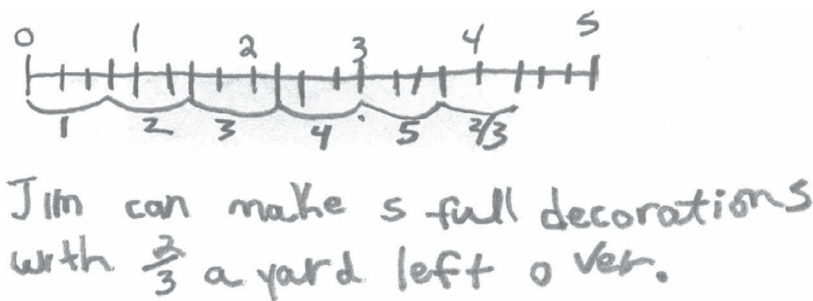 0 1 2 3 4 5
1 2 3 4 5 2/3
Jim can make 5 full decorations
with 2/3 a yard left over.